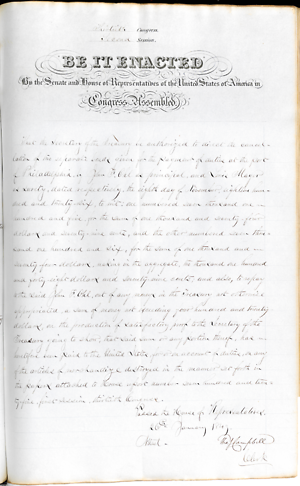 Thirtieth Congress
Second Session
BE IT ENACTED
By the Senate and House of Representatives of the United States of America in
Congress Assembled,
That the Secretary of the Treasury is authorized to
of the bonds for the payment of duties at the port
of Philadelphia in John F. Ohl as principal, and Louis Mayer
as surety, dated respectively, the eighth day of November, eighteen hun-
dred and thirty six, to wit: one numbered seven thousand one
hundred and five, for the sum of one thousand and seventy four
dollars and seventy nine cents, and the other numbered seven thou-
sand one hundred and six, for the sum of one thousand and
seventy four dollars, making in the aggregate, two thousand one hundred
and forty eight dollars and seventy nine cents; and also, to repay
the said John F. Ohl, out of any money in the Treasury not otherwise
appropriated, a sum of money not exceeding four hundred and
dollars, on the production of satisfactory proof to the Secretary of the
Treasury going to show, that said sum or any portion thereof, has
been paid to the United States, for or on account of duties, on any
the articles of merchandize destroyed in the manner set forth in
the report attached to House report number four hundred and
first session, thirtieth Congress.
Passed the House of Representatives,
January 1849
Attest
Tho J Campbell
Clerk